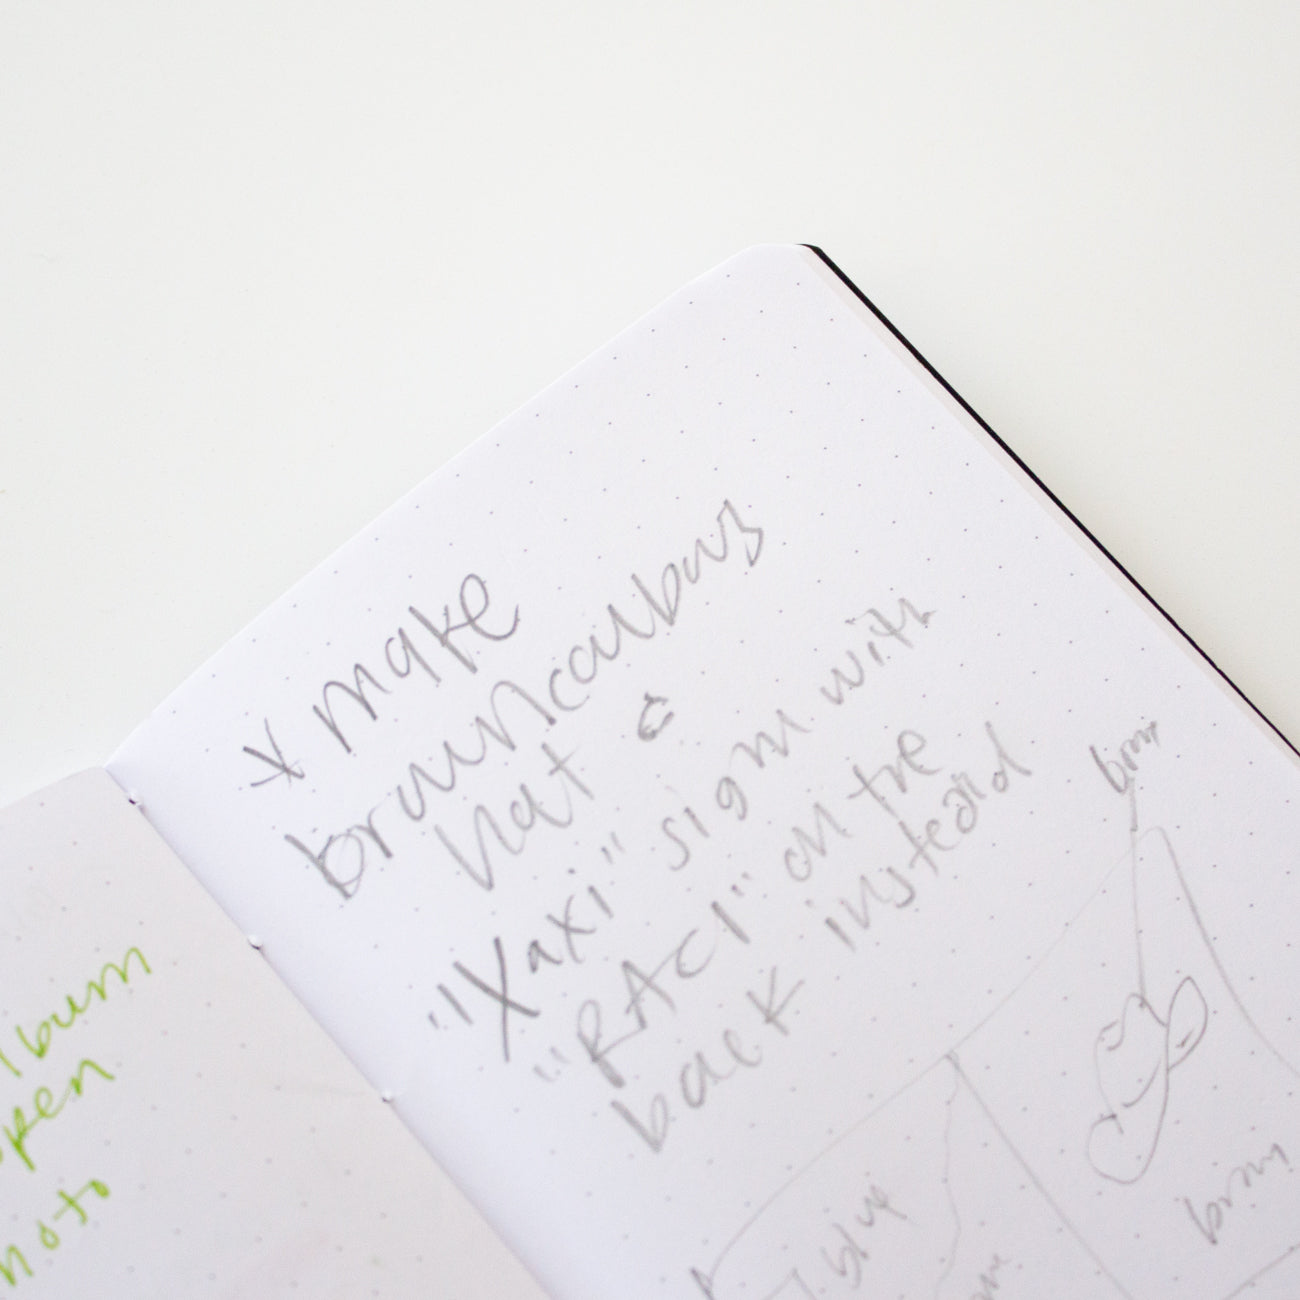 lbum
pen
hoto
* make
brown cowboy
hat &
"Yaxi" sign with
"RACI" on the
back instead
brown
blue
brown